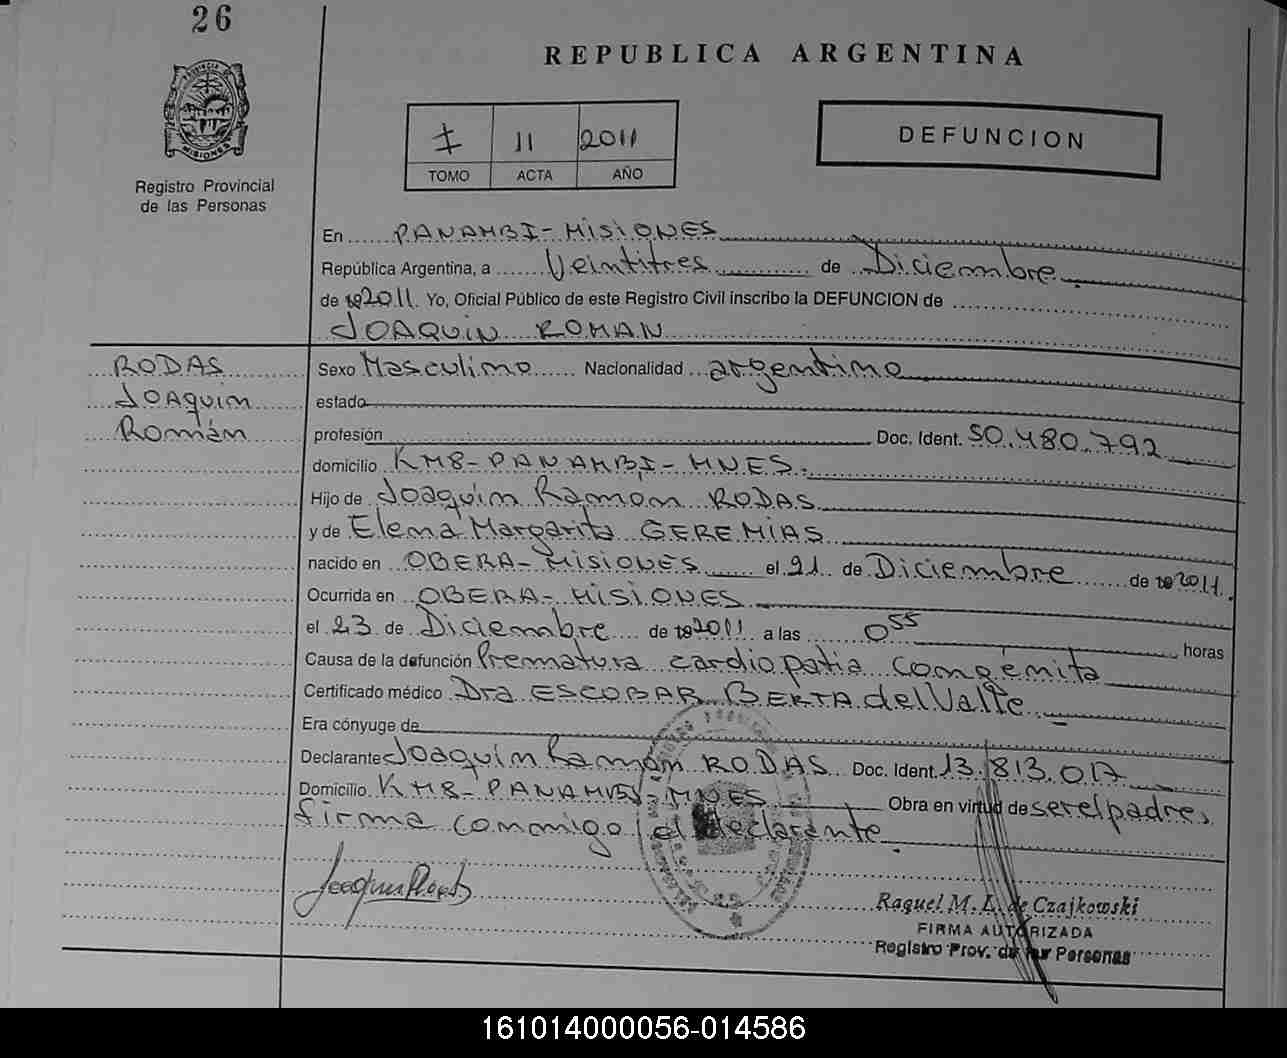 26
REPUBLICA ARGENTINA
I 11 2011
TOMO ACTA AÑO
DEFUNCION
PROVINCIA DE
MISIONES
Registro Provincial
de las Personas
En PANAMBI - MISIONES
República Argentina, a Veintitres de Diciembre
de 19 2011. Yo, Oficial Público de este Registro Civil inscribo la DEFUNCION de
JOAQUIN ROMAN
RODAS
Joaquin
Román
Sexo Masculino Nacionalidad argentino
estado
profesión Doc. Ident. 50.480.792
domicilio KM8 - PANAMBI - MNES.
Hijo de Joaquín Ramon RODAS
y de Elena Margarita GEREMIAS
nacido en OBERA - MISIONES el 21 de Diciembre de 19 2011.
Ocurrida en OBERA - MISIONES
el 23 de Diciembre de 19 2011 a las 0 55 horas
Causa de la defunción Prematura cardiopatia congenita
Certificado médico Dra ESCOBAR BERTA del Valle
Era cónyuge de
Declarante Joaquin Ramon RODAS Doc. Ident. 13.813.017
Domicilio KM8 - PANAMBI - MNES Obra en virtud de ser el padre.
firma conmigo el declarante.
Raquel M. L. de Czajkowski
FIRMA AUTORIZADA
Registro Prov. de las Personas
161014000056-014586